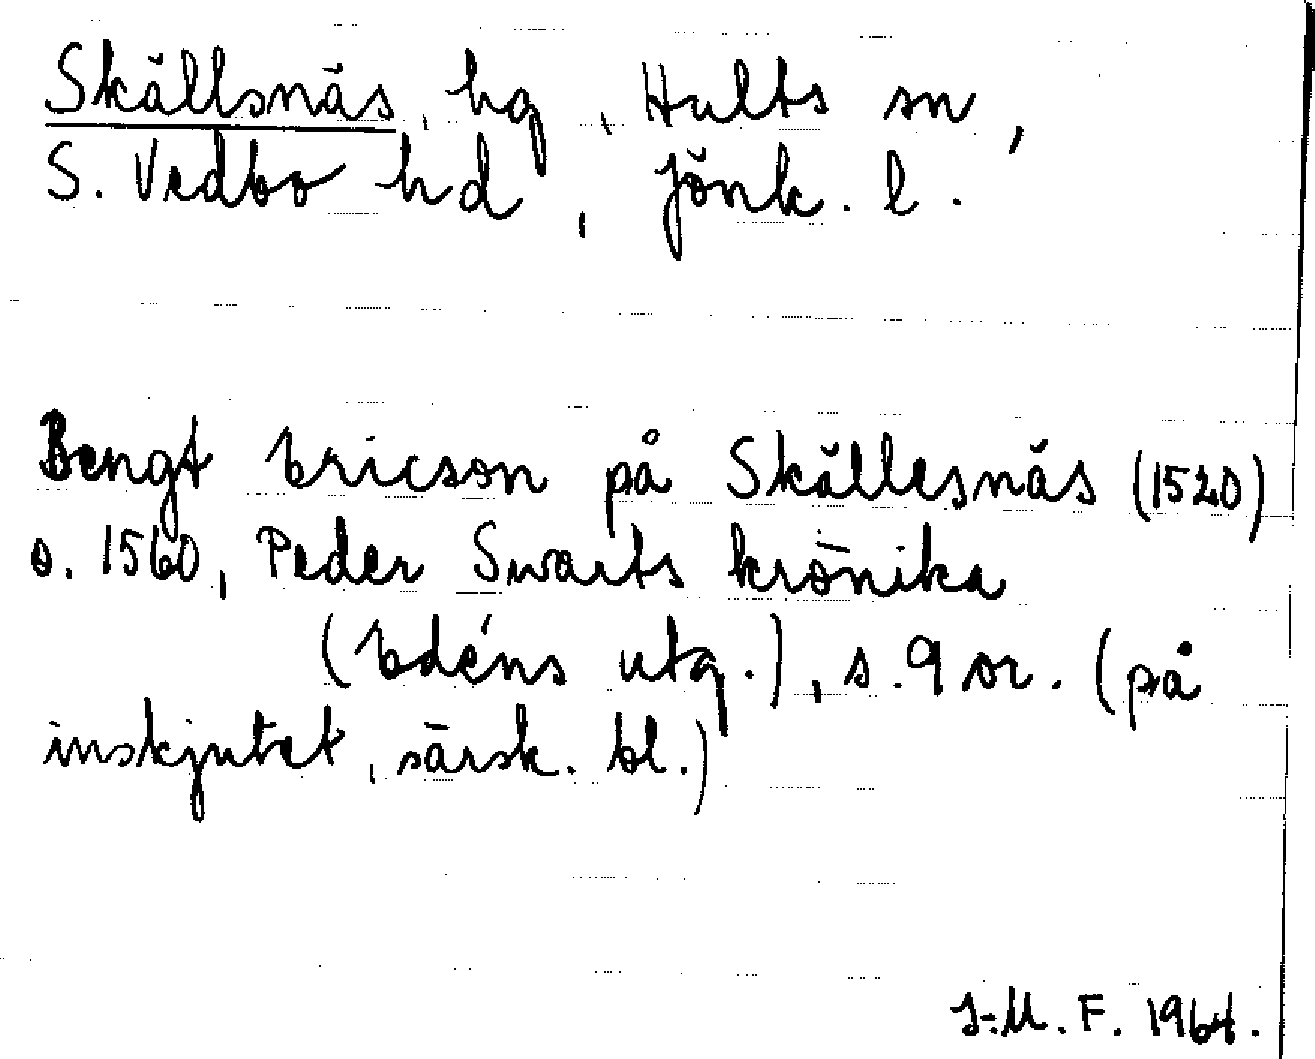 Skällsnäs, hg, Hults sn,
S. Vedbo hd, Jönk. l.
Bengt Ericson på Skällesnäs (1520)
o. 1560, Peder Swarts krönika
(Edéns utg.), s. 9 or. (på
inskjutet, särsk. bl.)
I-M. F. 1964.